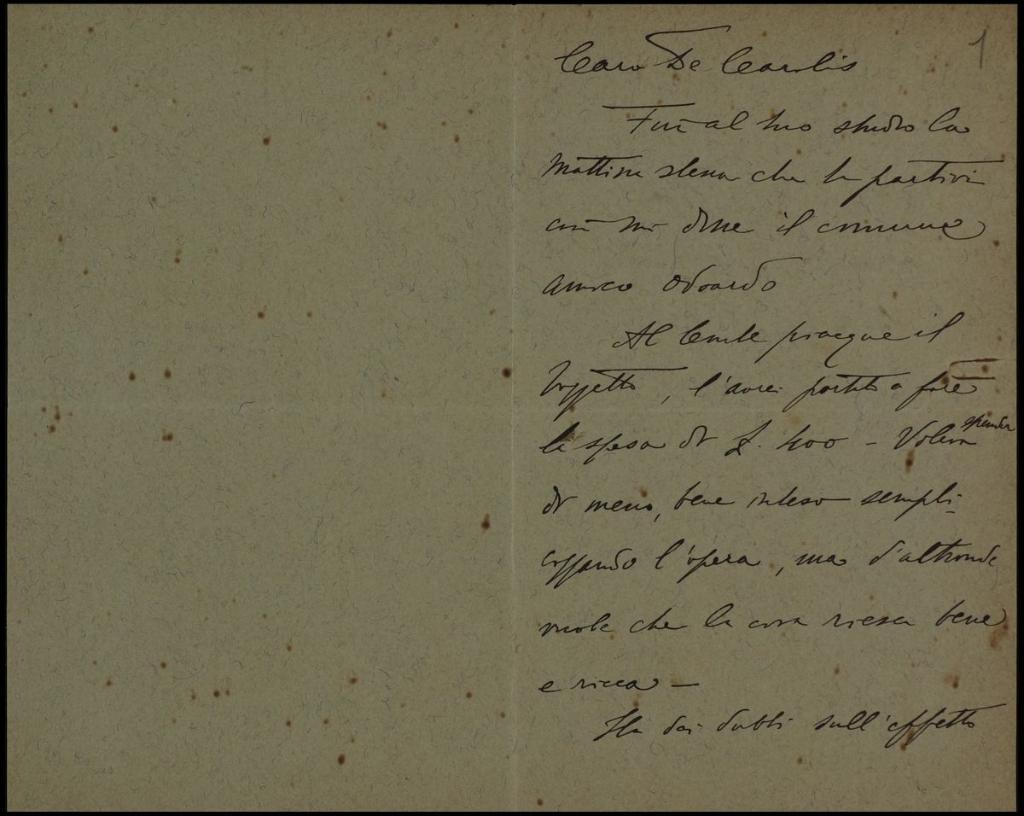 1
Caro De Carolis
Fui al tuo studio la
mattina stessa che tu partivi
così mi disse il comune
amico Odoardo
Al Conte piacque il
soggetto, l'avrei portato a fare
la spesa di £. 400 - Voleva spender
di meno, bene inteso sempli-
cizzando l'opera, ma d'altronde
vuole che la cosa riesca bene
e ricca -
Ha dei dubbi sull'effetto